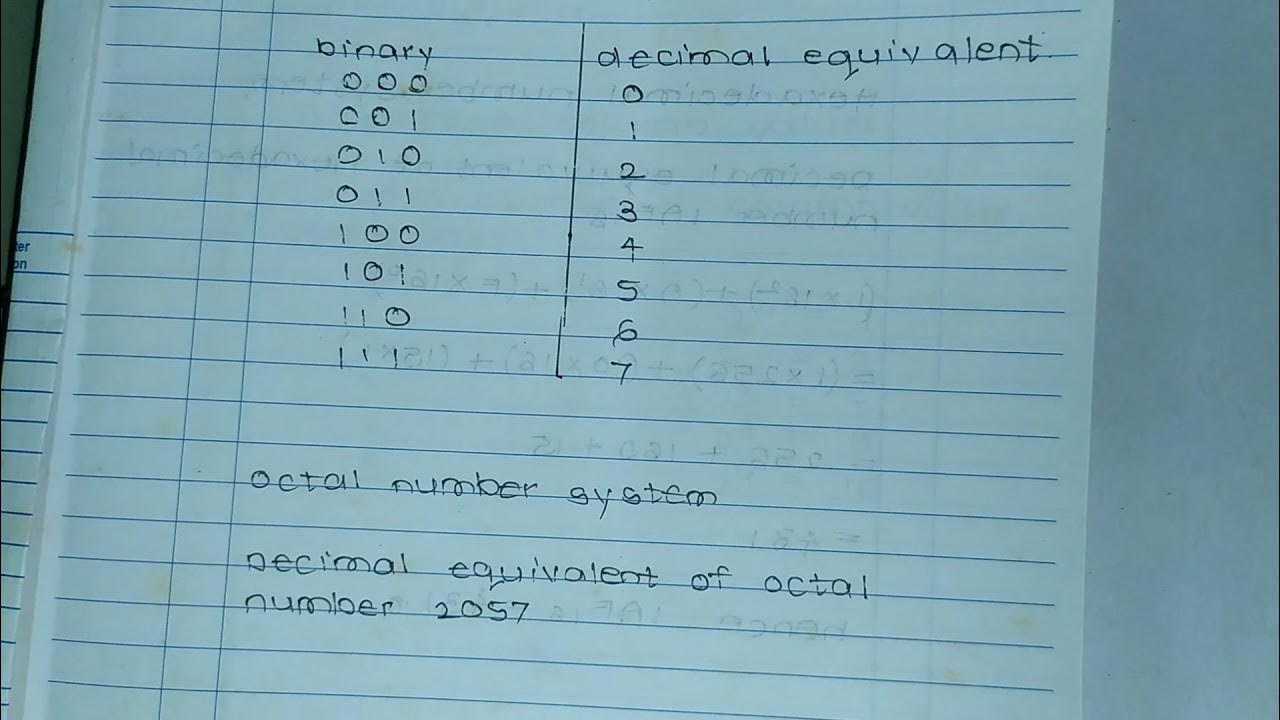 binary decimal equivalent
000 0
001 1
010 2
011 3
100 4
101 5
110 6
111 7
octal number system
Decimal equivalent of octal
number 2057
ter
on